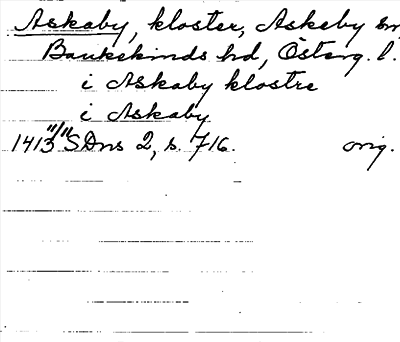 Askaby, kloster, Askeby sn,
Bankekinds hd, Österg. l.
i Askaby klostre
i Askaby
1413 11/11 SDns 2, s. 716. orig.